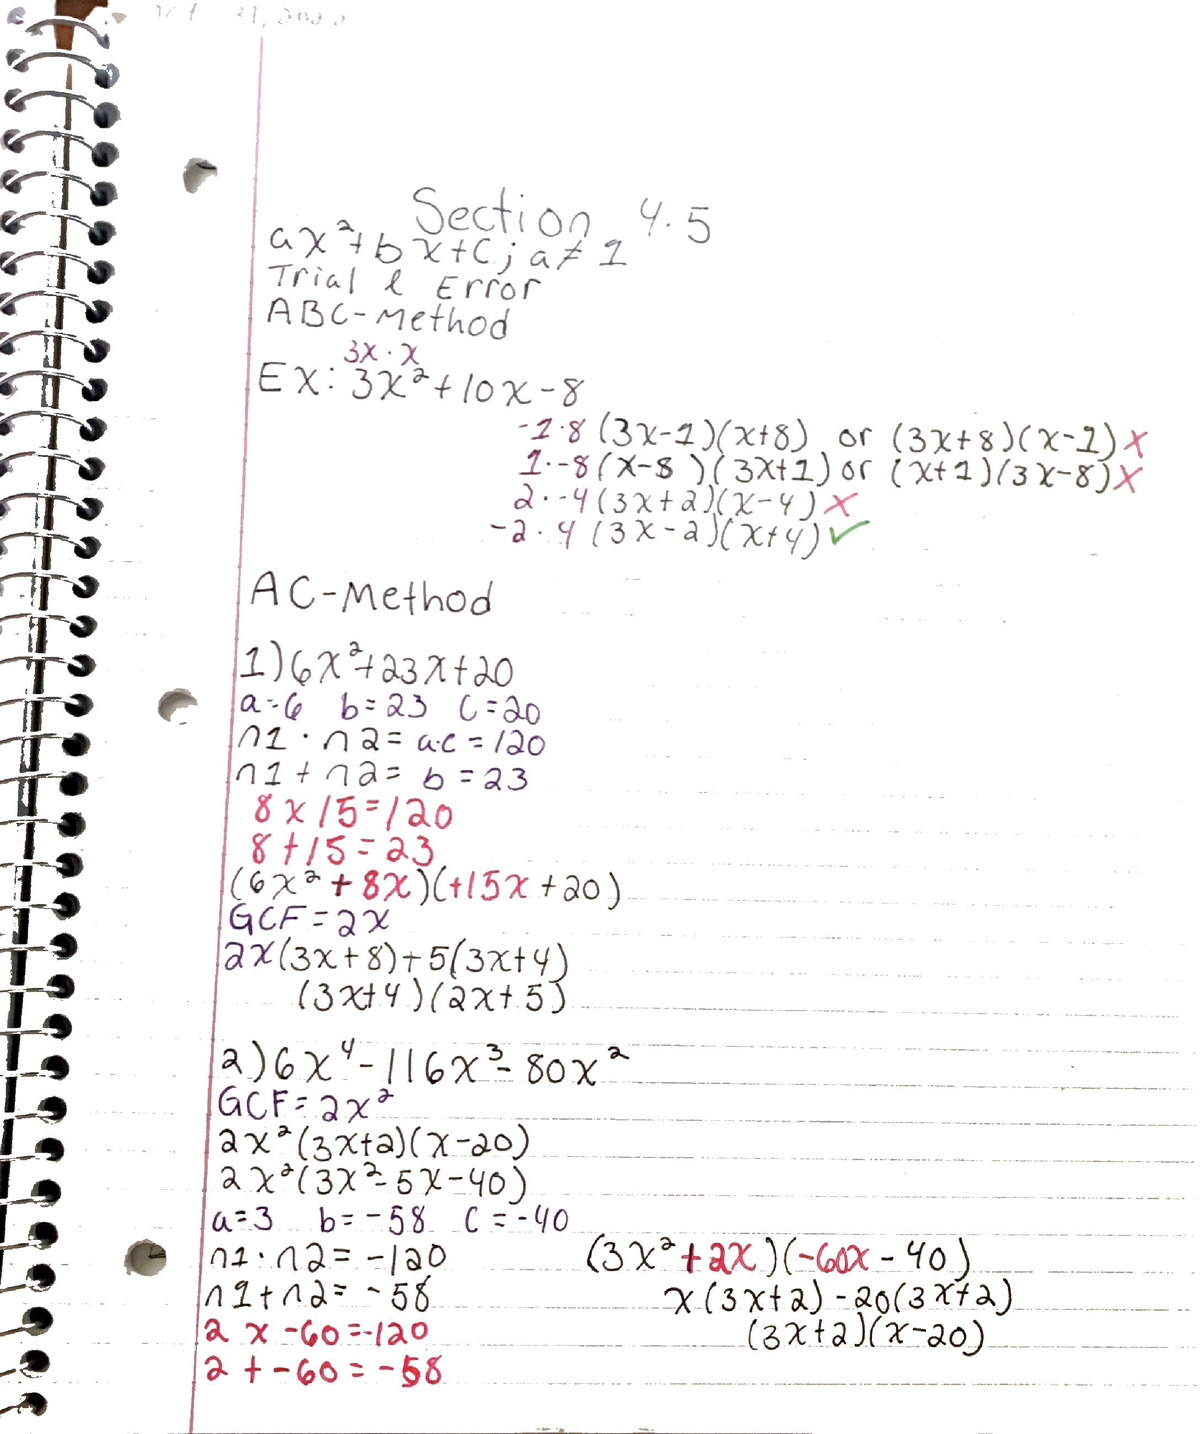 Section 4.5
ax²+bx+C; a≠1
Trial & Error
ABC-Method
3x·x
Ex: 3x²+10x-8
-1·8 (3x-1)(x+8) or (3x+8)(x-1) X
1·-8 (x-8)(3x+1) or (x+1)(3x-8) X
2·-4 (3x+2)(x-4) X
-2·4 (3x-2)(x+4) ✓
AC-Method
1) 6x²+23x+20
a=6 b=23 C=20
n1·n2= a·c=120
n1+n2= b=23
8x15=120
8+15=23
(6x²+8x)(+15x+20)
GCF=2x
2x(3x+8)+5(3x+4)
(3x+4)(2x+5)
2) 6x⁴-116x³-80x²
GCF=2x²
2x²(3x+2)(x-20)
2x²(3x²-5x-40)
a=3 b=-58 C=-40
n1·n2=-120
n1+n2=-58
2 x -60=-120
2+-60=-58
(3x²+2x)(-60x-40)
x(3x+2)-20(3x+2)
(3x+2)(x-20)